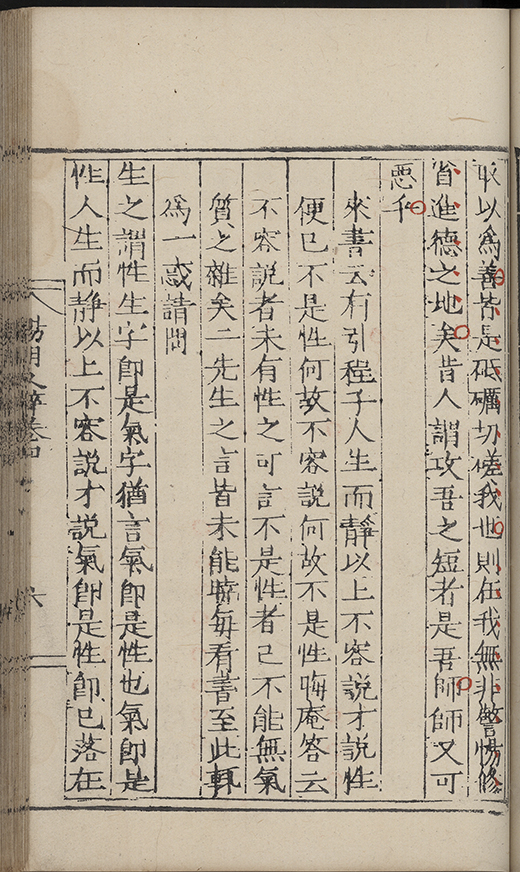 取以爲善皆是砥礪切磋我也則在我無非警惕修
省進德之地矣昔人謂攻吾之短者是吾師師又可
惡乎
來書云有引程子人生而靜以上不容說才說性
便已不是性何故不容說何故不是性晦庵答云
不容說者未有性之可言不是性者已不能無氣
質之雜矣二先生之言皆未能曉每看書至此輒
爲一惑請問
生之謂性生字卽是氣字猶言氣卽是性也氣卽是
性人生而靜以上不容說才說氣卽是性卽已落在
陽明文粹卷四
六